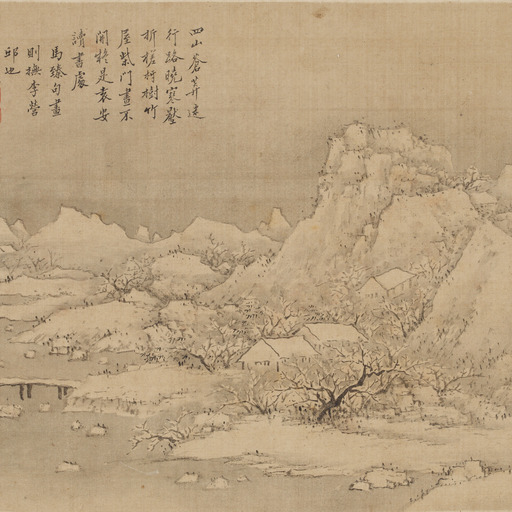 四山蒼莽迷
行路曉寒壓
折槎枒樹竹
屋柴門晝不
開是袁安
讀書處
馬臻句畫
則撫李營
邱也